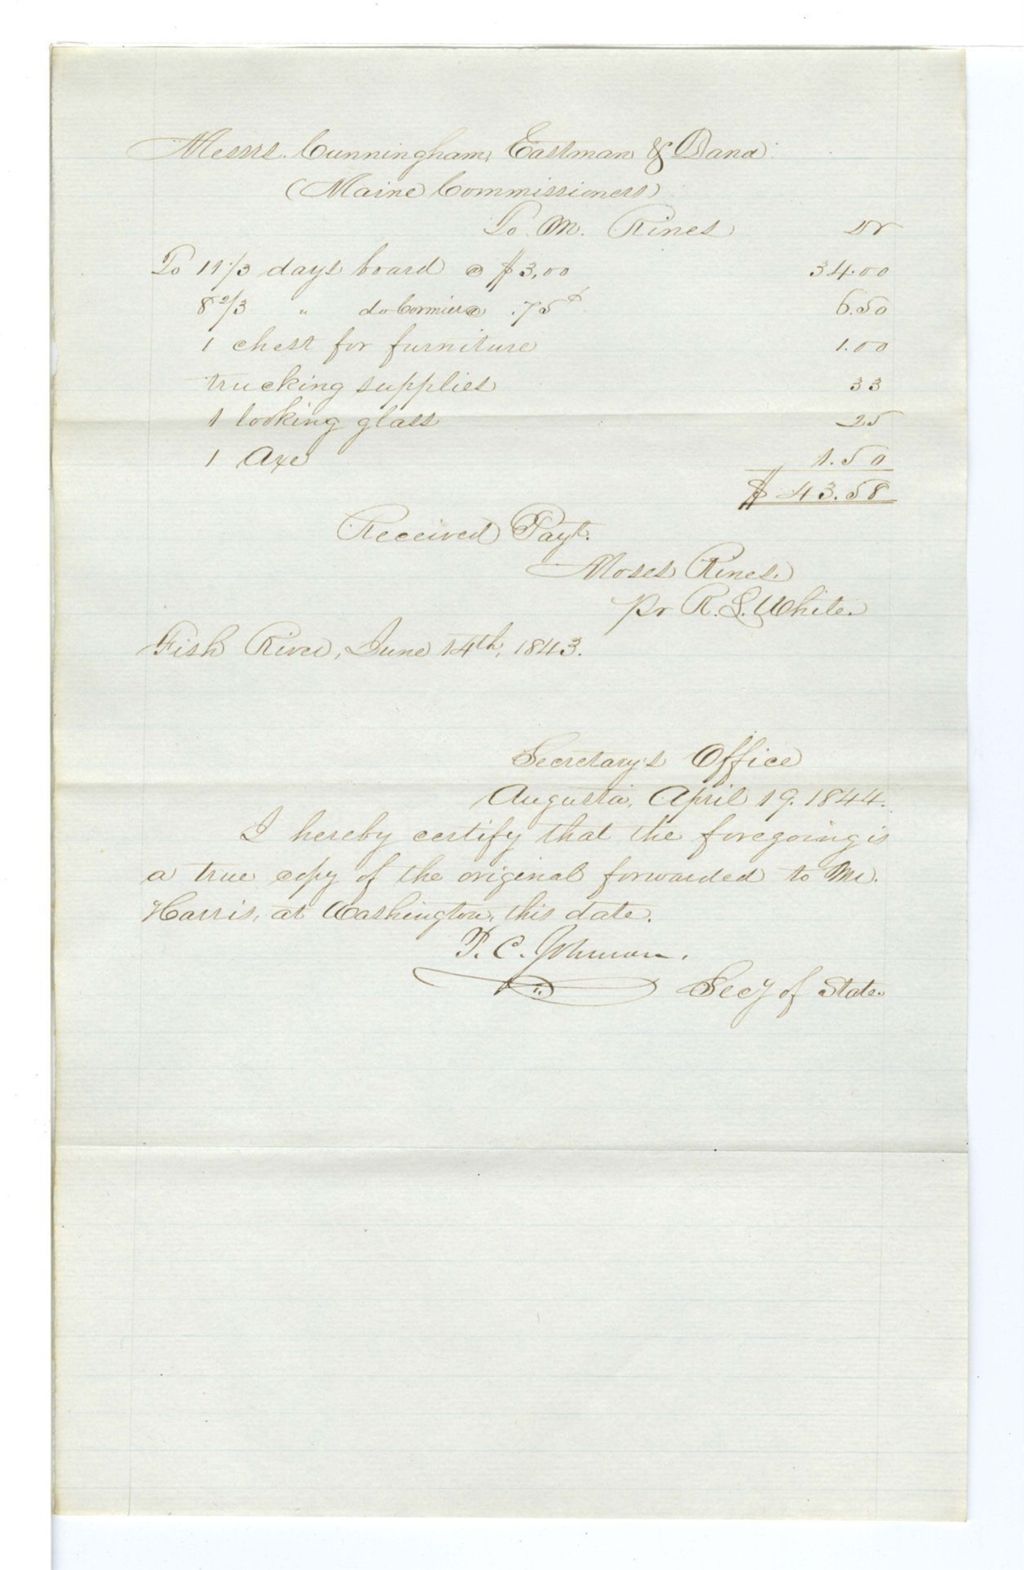 Messrs. Cunningham, Eastman & Dana
(Maine Commissioners)
To M. Rines Dr
To 11 1/3 days board @ $3,00 34.00
8 2/3 " do Cormier @ .75¢ 6.50
1 chest for furniture 1.00
trucking supplies 33
1 looking glass 25
1 Axe 1.50
$43.58
Received Payt.
Moses Rines.
Pr R. S. White.
Fish River, June 14th, 1843.
Secretary's Office
Augusta, April 19. 1844.
I hereby certify that the foregoing is
a true copy of the original forwarded to Mr.
Harris, at Washington, this date.
P. C. Johnson.
Secy of State.